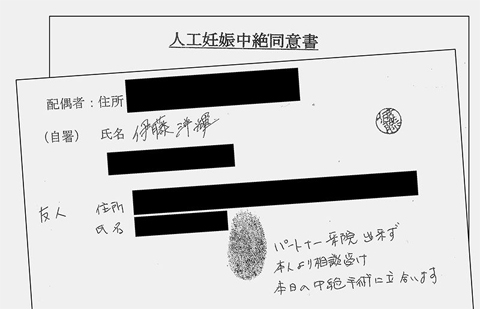 人工妊娠中絶同意書
配偶者：住所
(自署) 氏名 伊藤洋輝
友人 住所
氏名
パートナー来院出来ず
本人より相談受け
本日の中絶手術に立合います